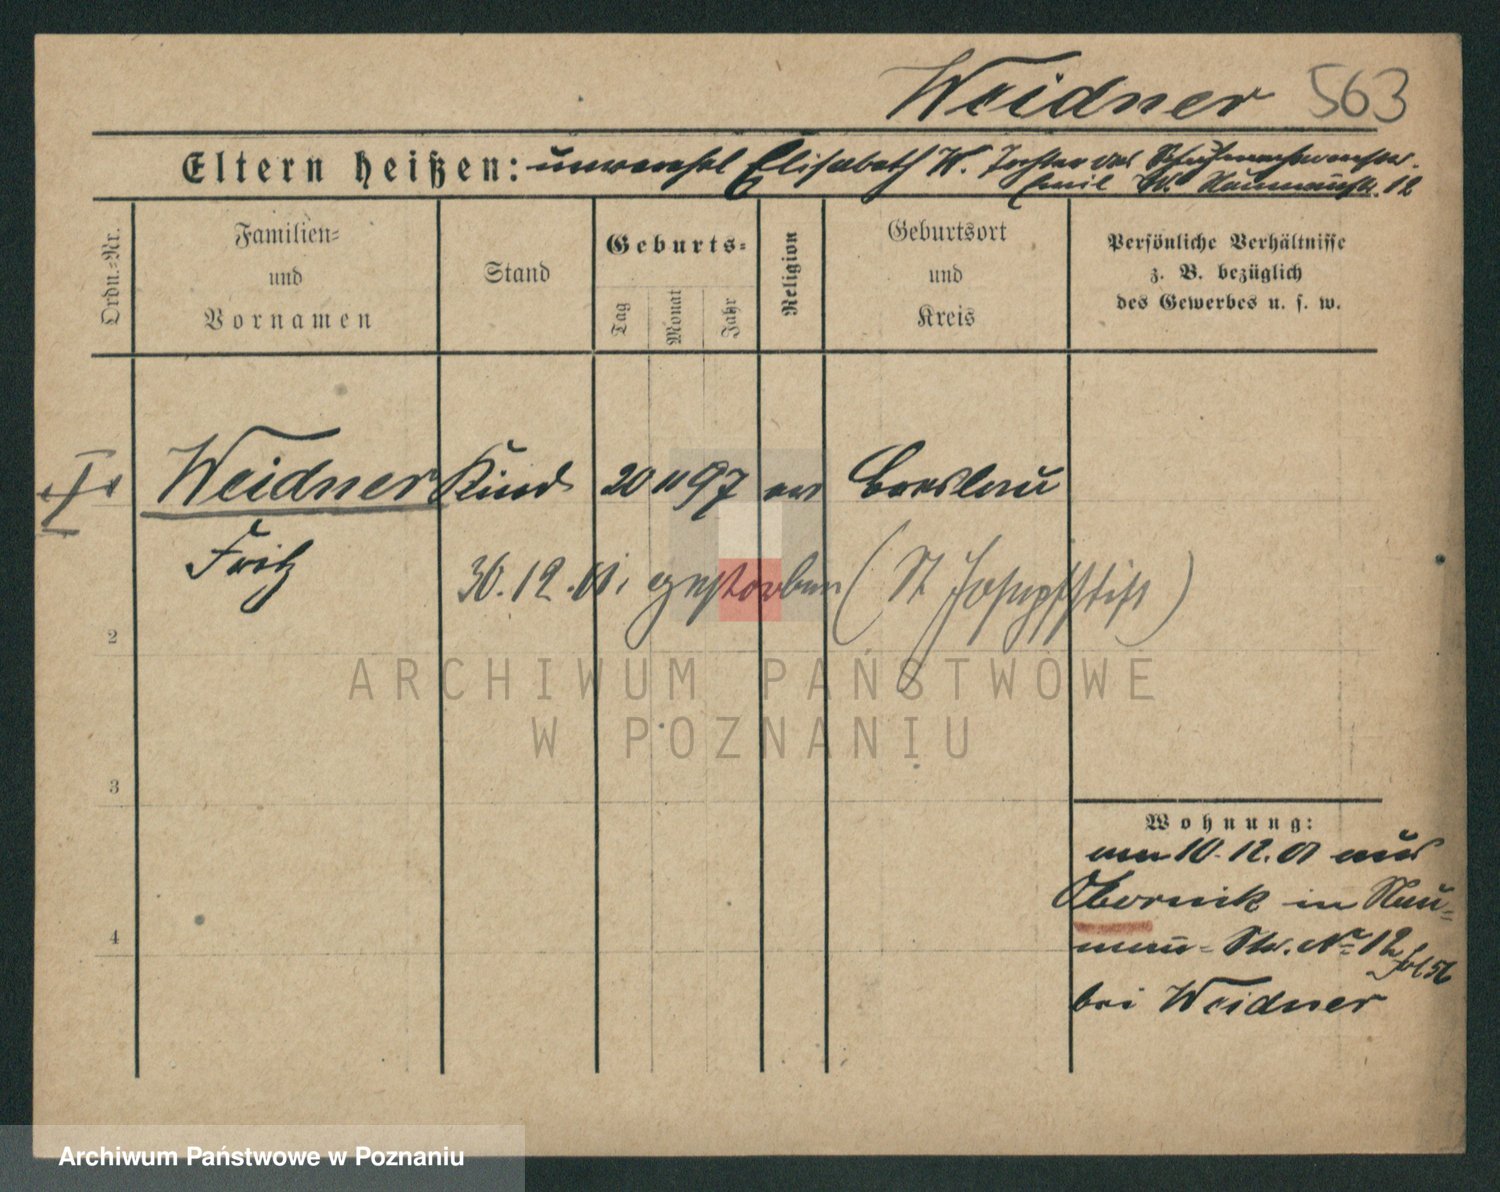 Weidner 563
Eltern heißen: unverehel Elisabeth W. Tochter des Schuhmachermstrs.
Emil W. Naumannstr. 12
Ordn.-Nr.
Familien-
und
Vornamen
Stand
Geburts-
Tag
Monat
Jahr
Religion
Geburtsort
und
Kreis
Persönliche Verhältnisse
z. B. bezüglich
des Gewerbes u. s. w.
Weidner Kind 20 11 97 ev Breslau
Fritz
30.12.01. gestorben (St Josephstift)
2
3
4
Wohnung:
am 10.12.01 aus
Obornik in Nau-
mann-Str. No 12
bei Weidner
ARCHIWUM PAŃSTWOWE
W POZNANIU
Archiwum Państwowe w Poznaniu